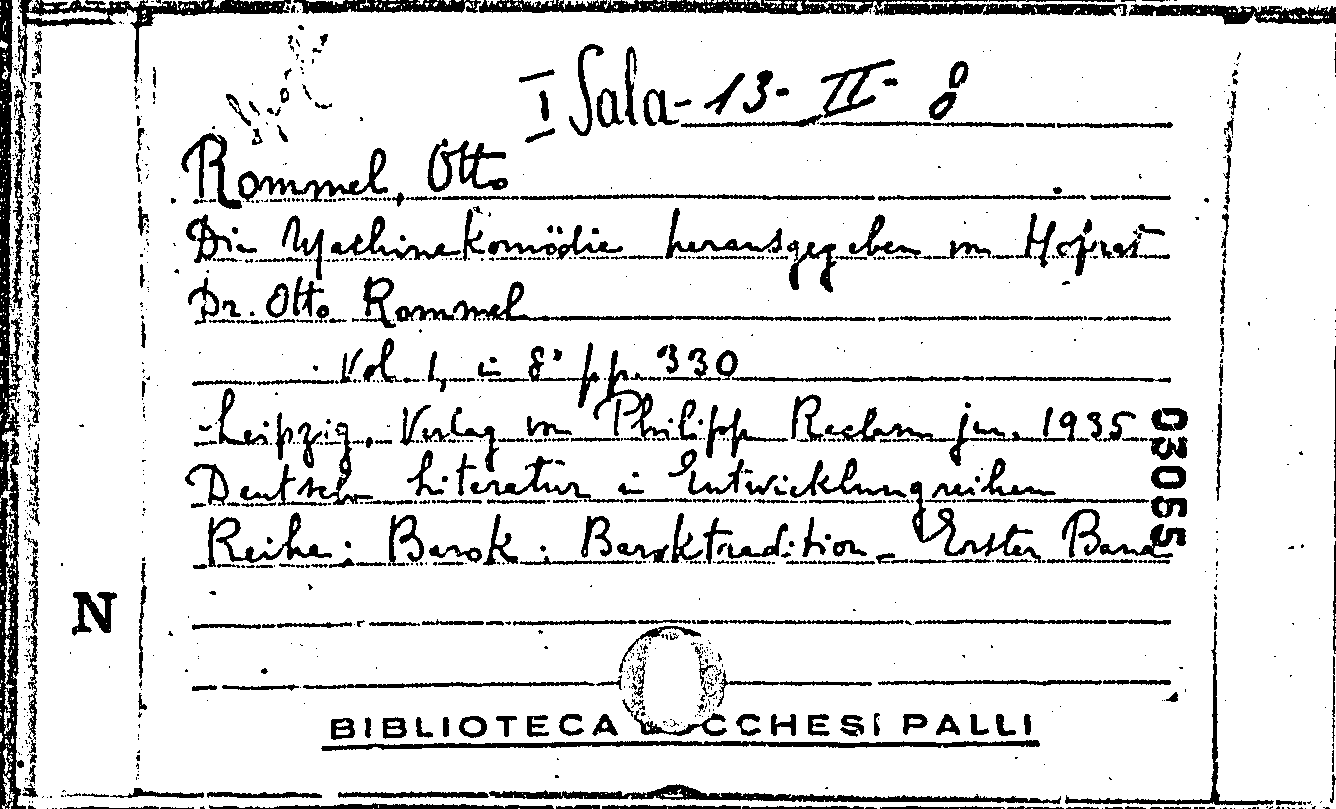 I Sala - 13 - II - 8
Rommel, Otto
Die Maschinekomödie herausgegeben von Hofrat
Dr. Otto Rommel
Vol. 1, in 8° pp. 330
Leipzig, Verlag von Philipp Reclam jun. 1935
03055
Deutsch Literatur in Entwicklungreihen
Reihe: Barok: Baroktradition - Erster Band
N
BIBLIOTECA CCHESI PALLI